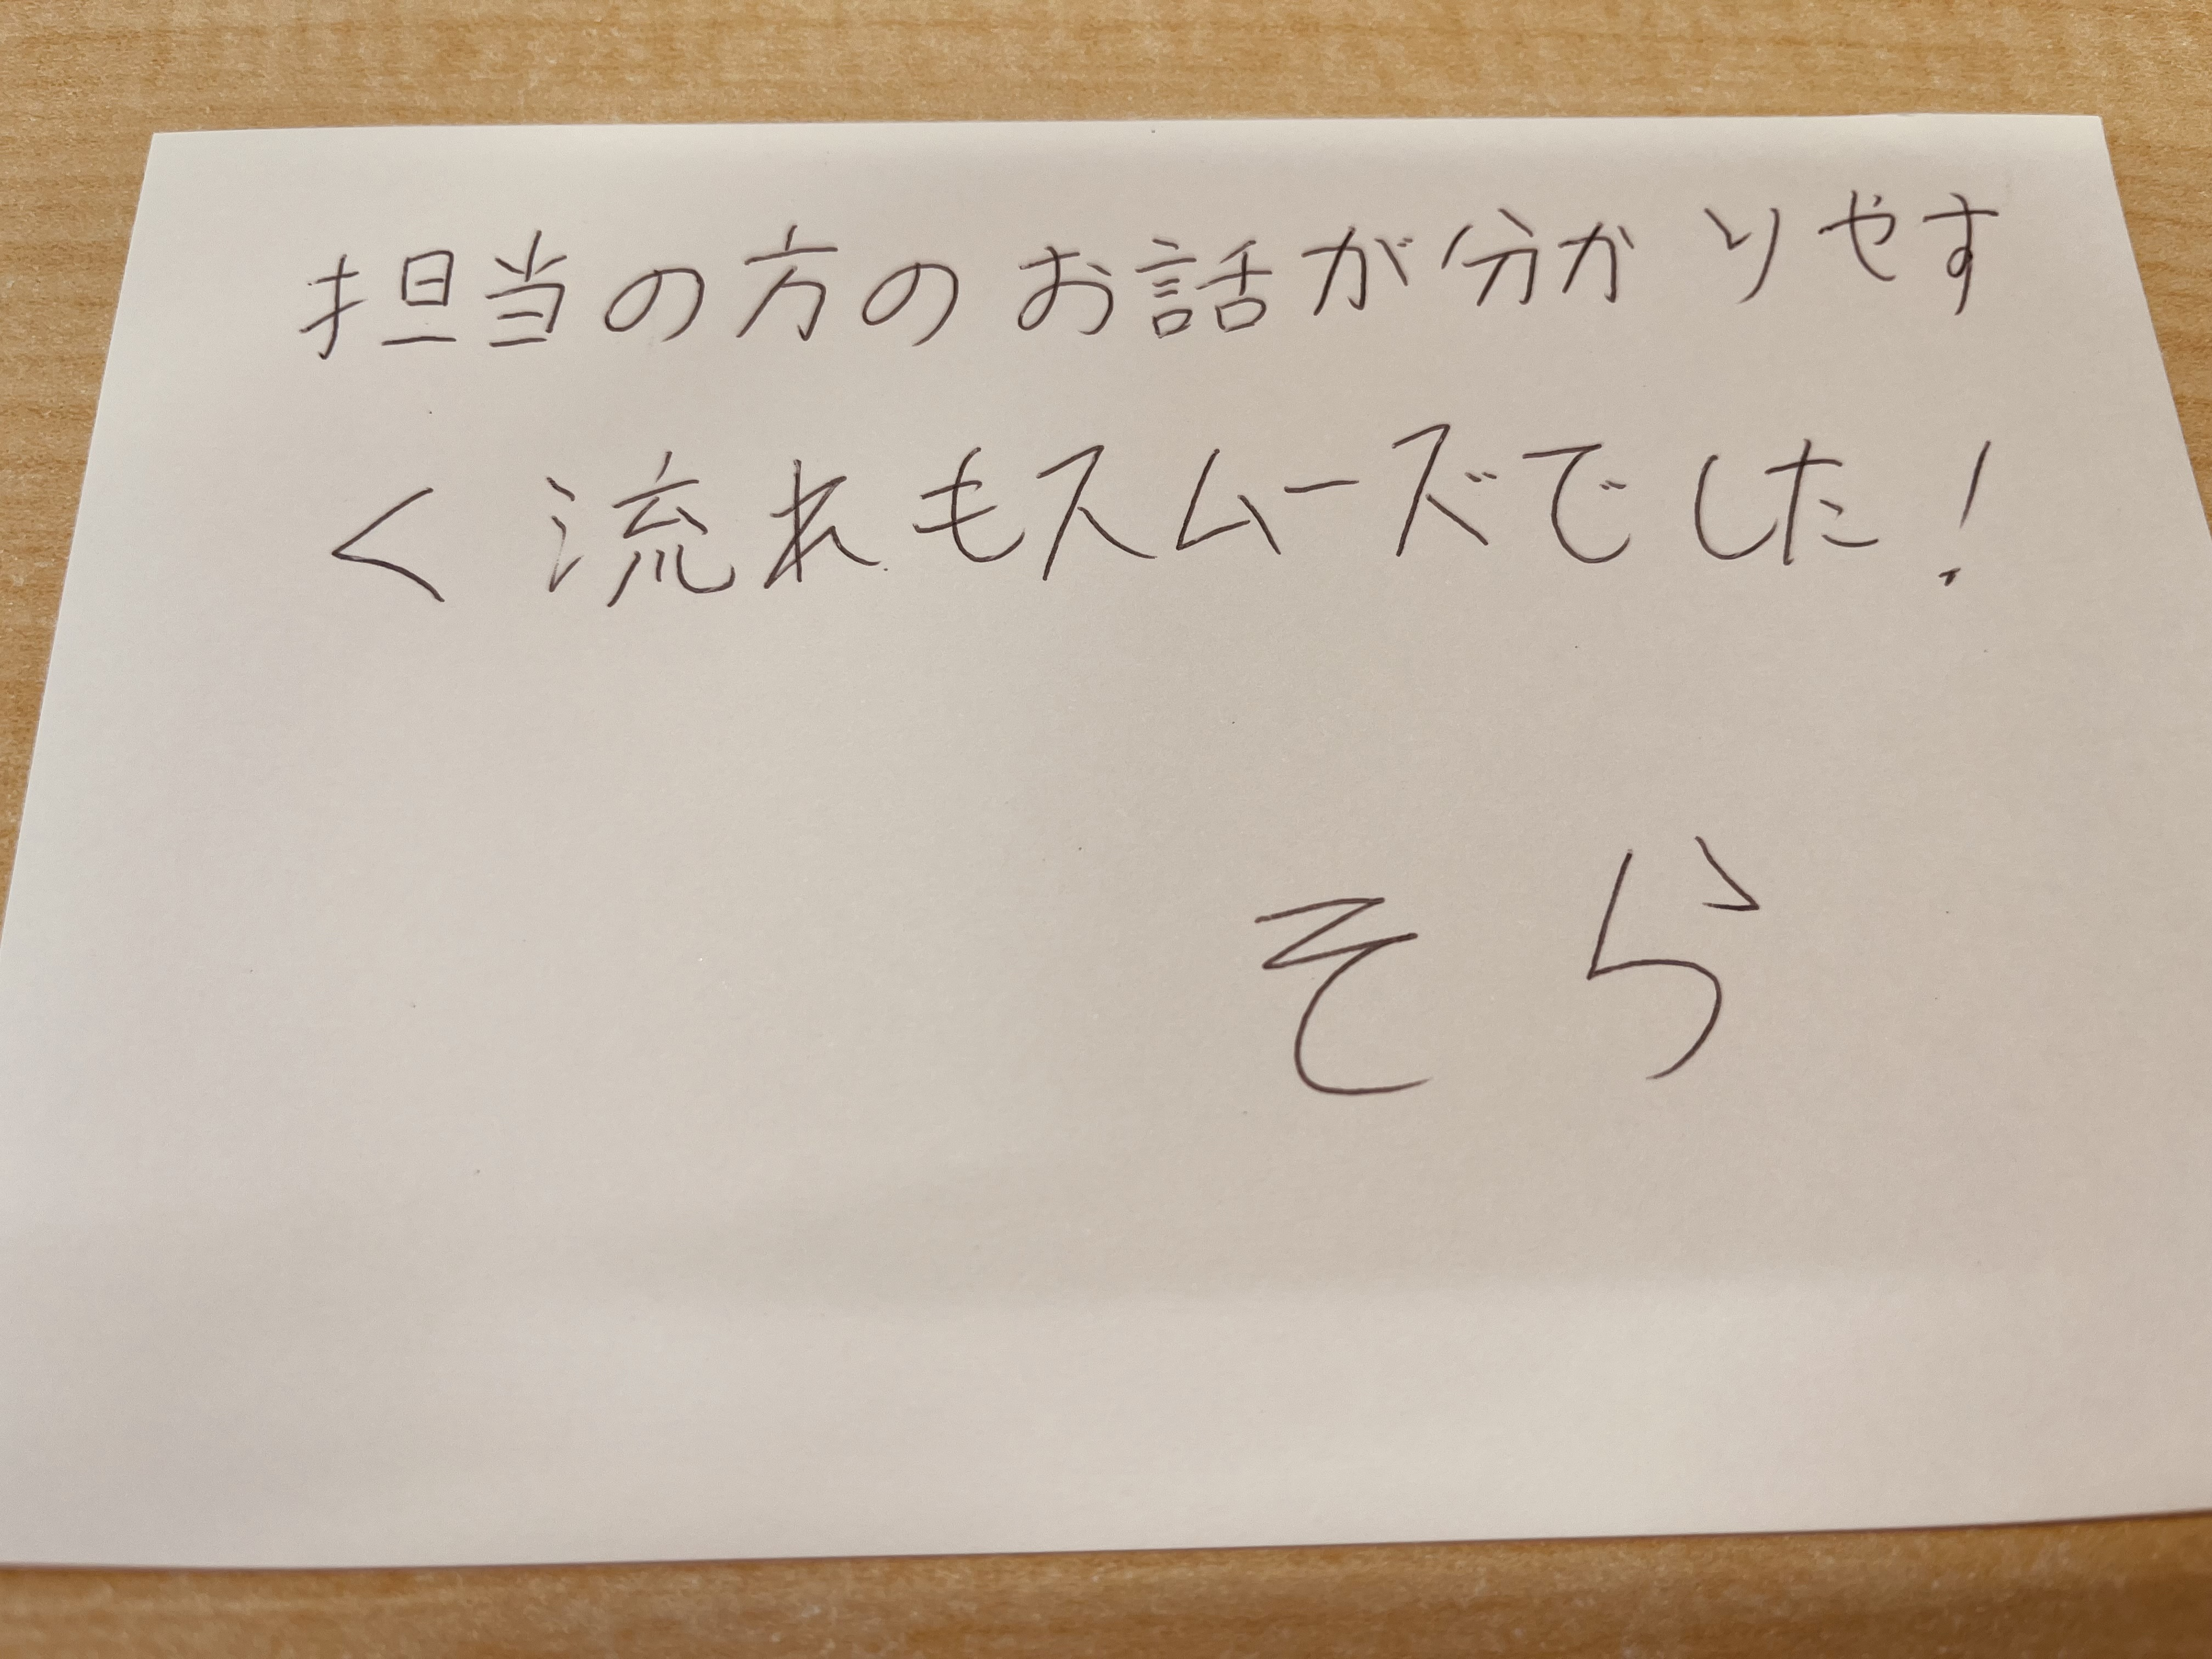 担当の方のお話が分かりやす
く流れもスムーズでした!
そら